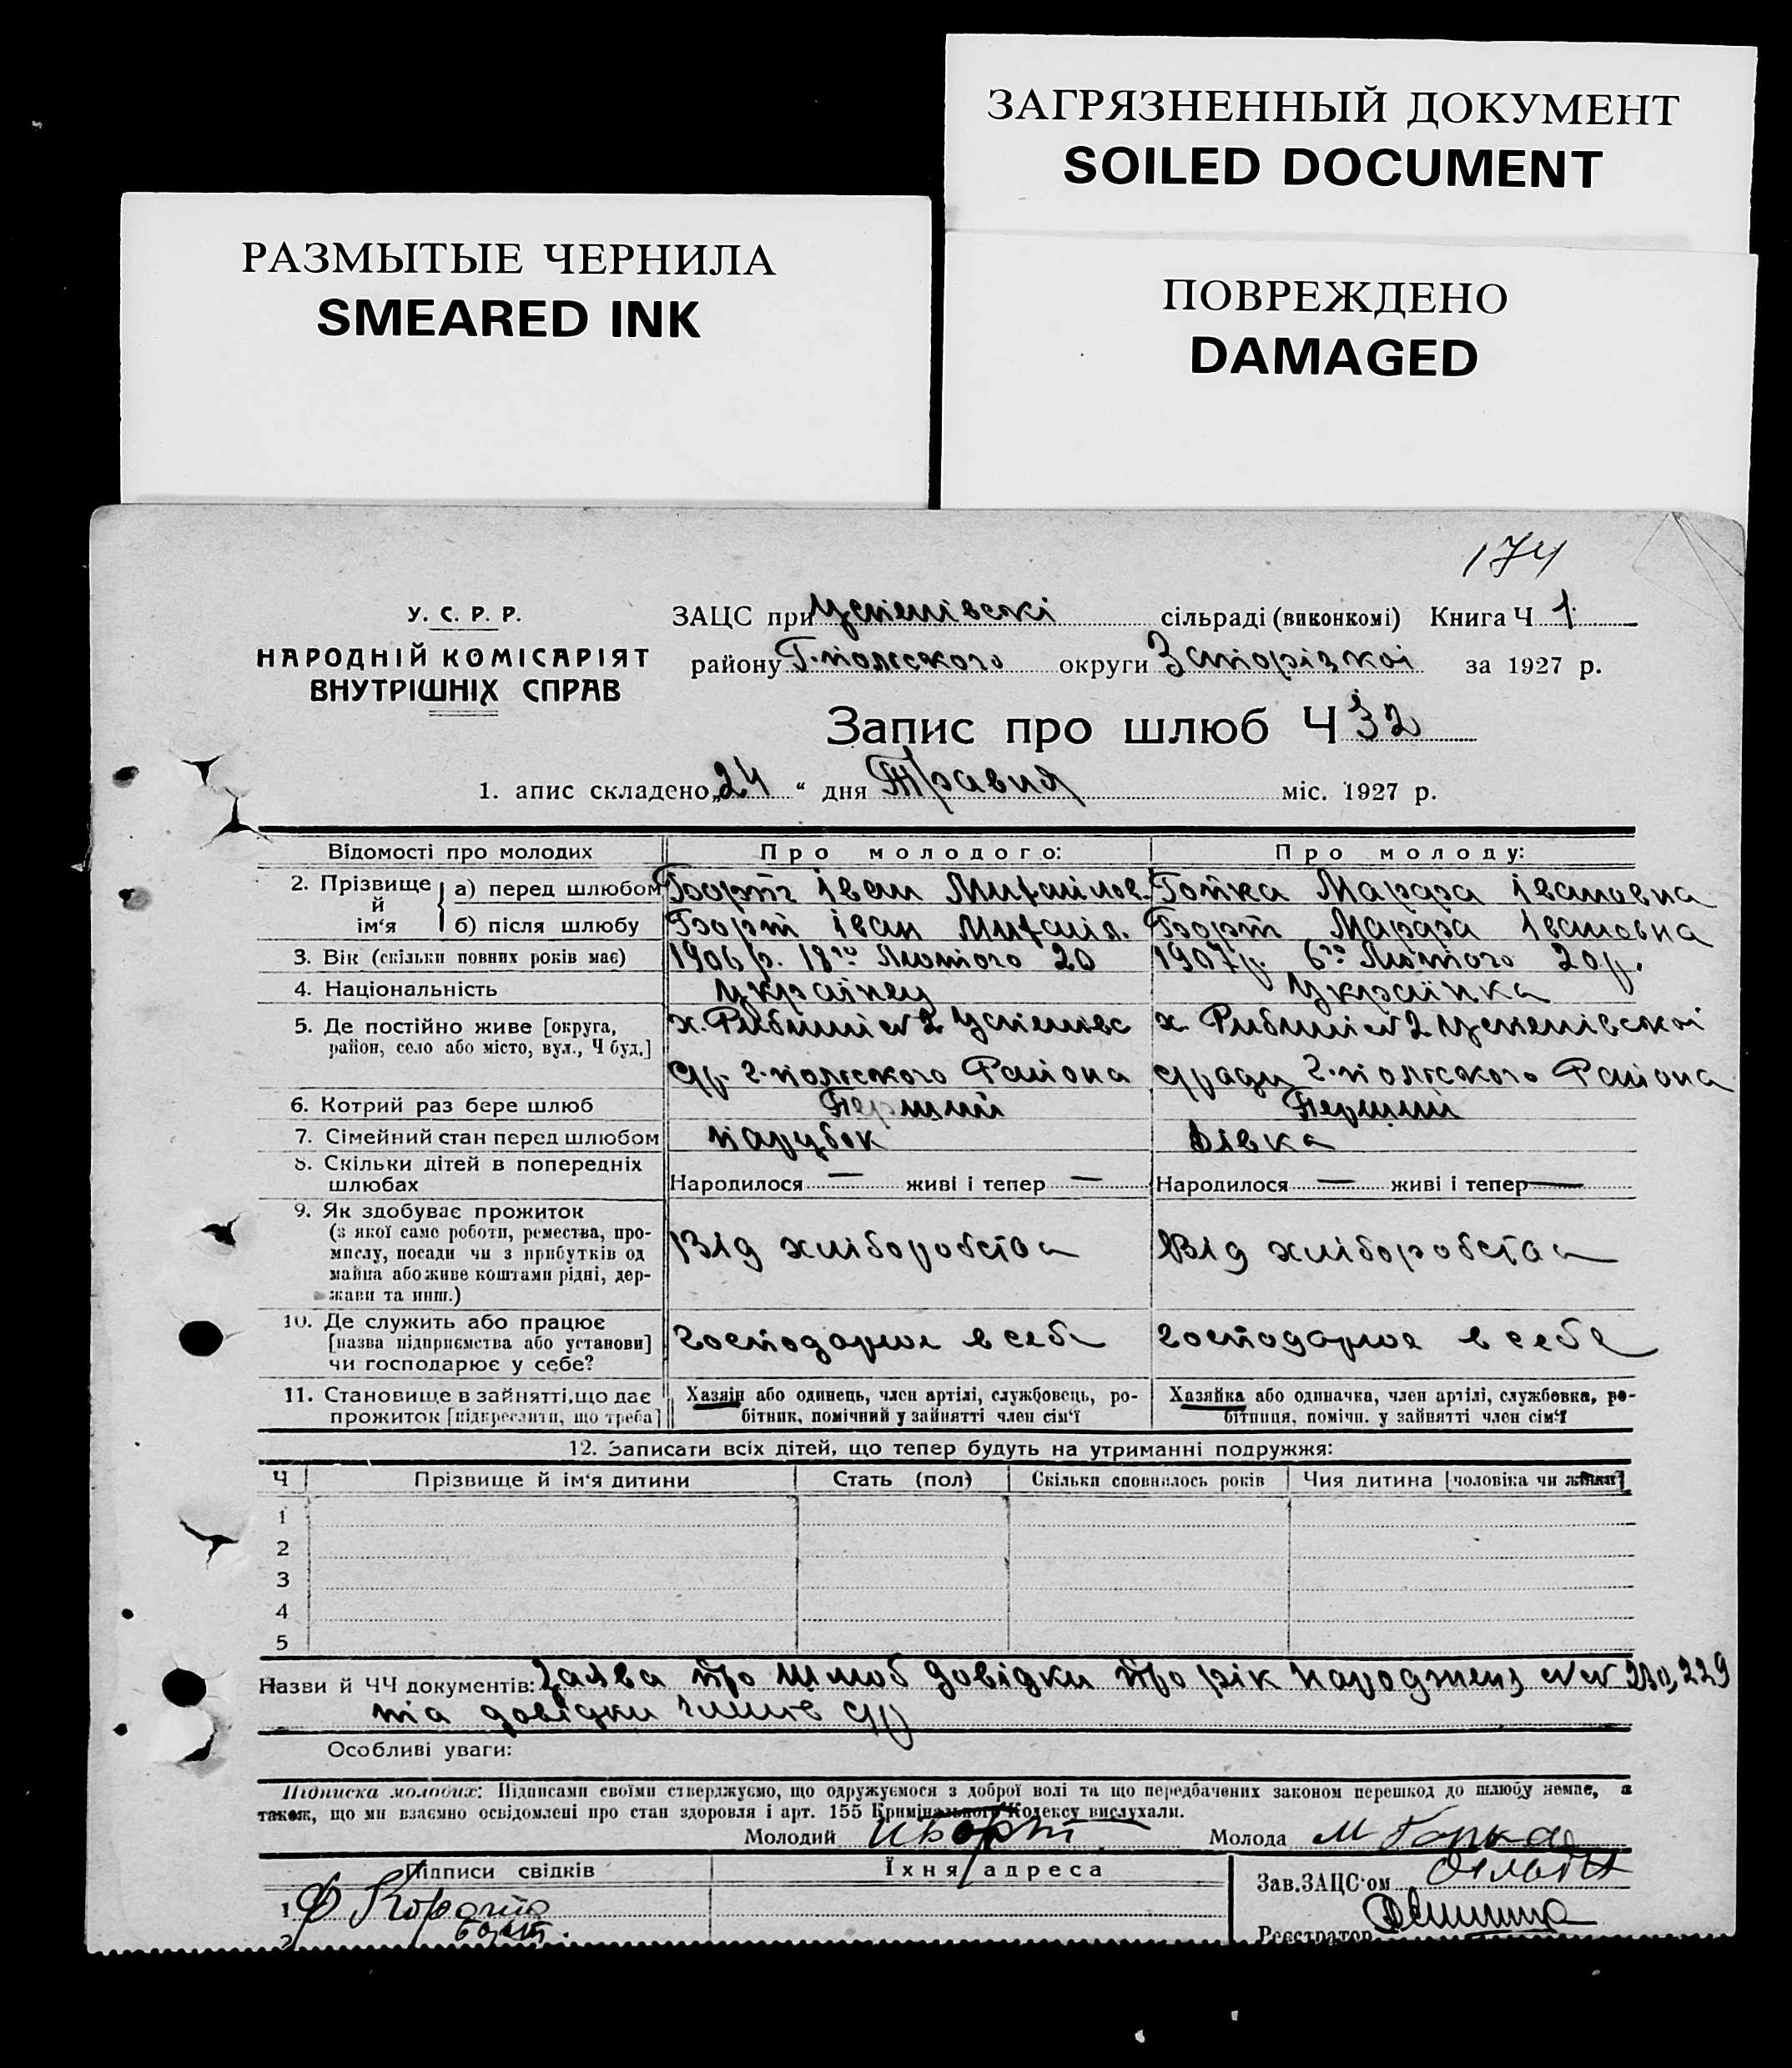 ЗАГРЯЗНЕННЫЙ ДОКУМЕНТ
SOILED DOCUMENT
РАЗМЫТЫЕ ЧЕРНИЛА
SMEARED INK
ПОВРЕЖДЕНО
DAMAGED
174
У. С. Р. Р.
НАРОДНІЙ КОМІСАРІЯТ
ВНУТРІШНІХ СПРАВ
ЗАЦС при Успенівскі сільраді (виконкомі) Книга Ч 1
району Г-польского округи Запорізкоі за 1927 р.
Запис про шлюб Ч 32
1. апис складено „24“ дня Травня міс. 1927 р.
Відомості про молодих Про молодого: Про молоду:
2. Прізвище й ім‘я
а) перед шлюбом Борт Іван Михайлов. Гопка Марфа Івановна
б) після шлюбу Борт Іван Михайл. Борт Марфа Івановна
3. Вік (скільки повних років має) 1906 р. 18го Лютого 20 1907 р. 6го Лютого 20 р.
4. Національність Українец Українка
5. Де постійно живе [округа, район, село або місто, вул., Ч буд.]
х. Рибний №2 Успенівс х. Рибний №2 Успенівскоі
с/р. Г-польского Района с/ради Г-польского Района
6. Котрий раз бере шлюб Перший Перший
7. Сімейний стан перед шлюбом парубок Дівка
8. Скільки дітей в попередніх шлюбах Народилося — живі і тепер — Народилося — живі і тепер —
9. Як здобуває прожиток
(з якої саме роботи, ремества, про-
мислу, посади чи з прибутків од
майна або живе коштами рідні, дер-
жави та инш.)
Від хліборобства Від хліборобства
10. Де служить або працює
[назва підприємства або установи]
чи господарює у себе?
Господарює в себе Господарює в себе
11. Становище в зайнятті, що дає
прожиток [підкреслити, що треба]
Хазяін або одинець, член артілі, службовець, ро-
бітник, помічний у зайнятті член сім‘ї
Хазяйка або одиначка, член артілі, службовка, ро-
бітниця, помічн. у зайнятті член сім‘ї
12. Записати всіх дітей, що тепер будуть на утриманні подружжя:
Ч Прізвище й ім‘я дитини Стать (пол) Скільки сповнилось років Чия дитина [чоловіка чи жінки]
1
2
3
4
5
Назви й ЧЧ документів: Заява про шлюб довідки про рік народженя №№ 230, 229
та довідки с/р
Особливі уваги:
Підписка молодих: Підписами своїми стверджуємо, що одружуємося з доброї волі та що передбачених законом перешкод до шлюбу немає, а
також, що ми взаємно освідомлені про стан здоровля і арт. 155 Кримінального Кодексу вислухали.
Молодий И Борт Молода М Гопка
Підписи свідків Їхня адреса
Зав.ЗАЦС‘ом
1 Ф
2 Борт.
Реєстратор